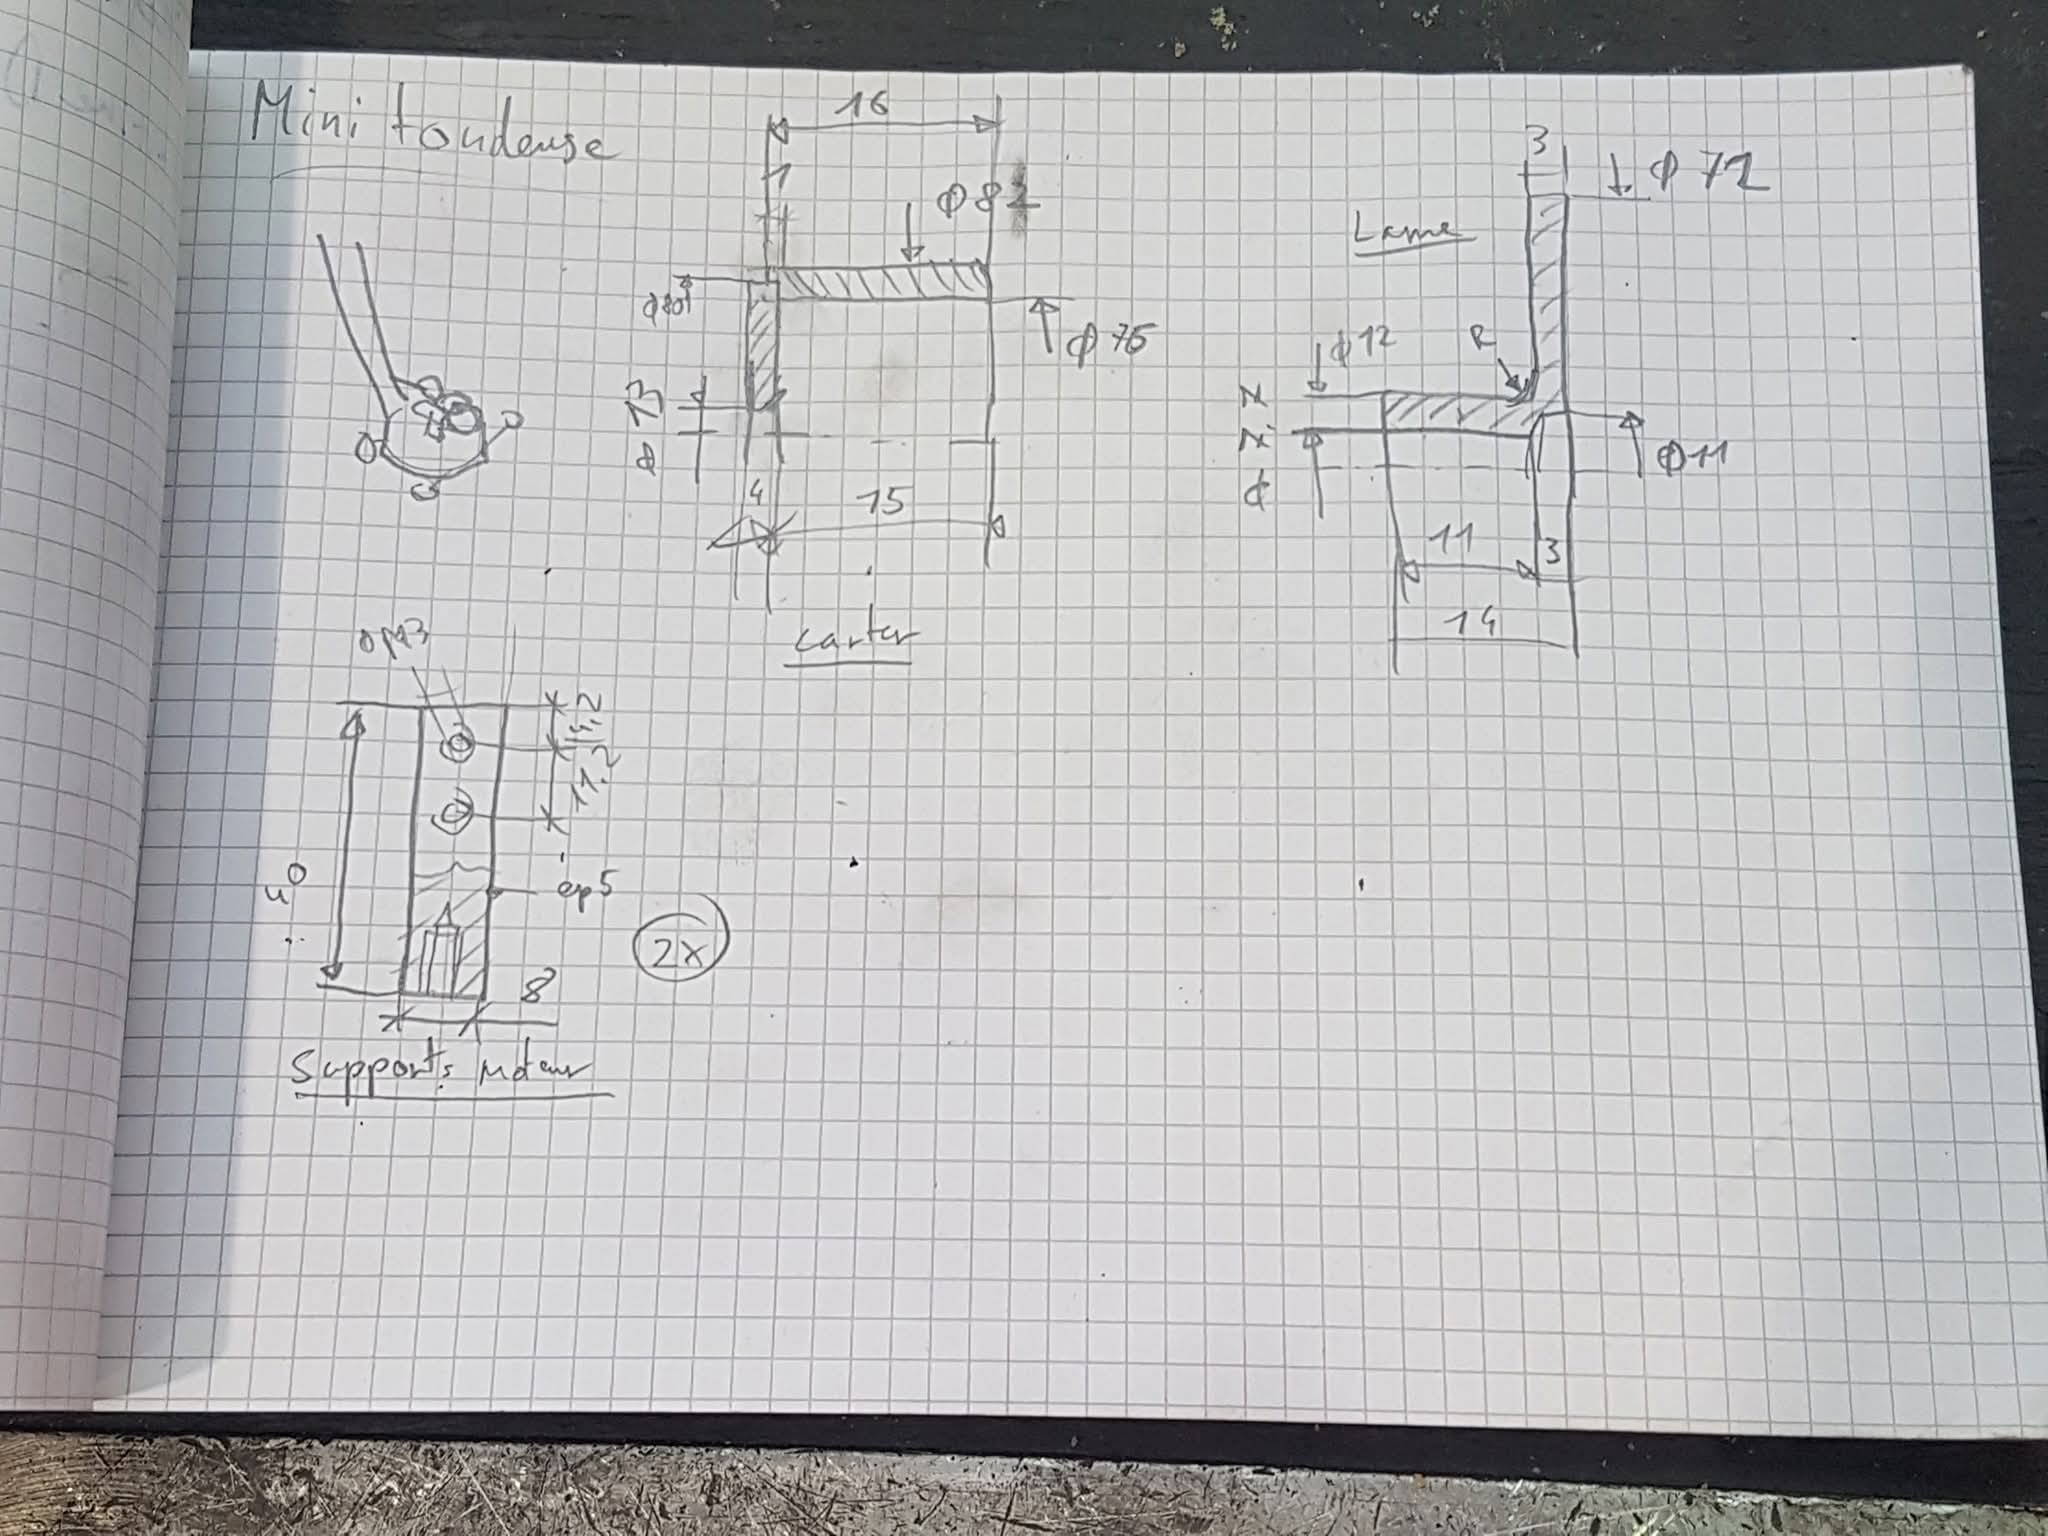 Mini tondeuse
16
1
Φ 8
Φ 76
13
Φ
4
15
carter
Lame
3
Φ 72
Φ 12
R
Φ 11
11
3
14
4,2
11.2
40
ep 5
2x
8
Supports Moteur